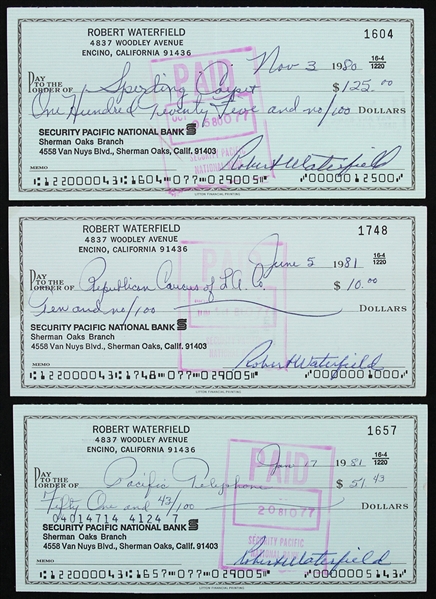 ROBERT WATERFIELD 1604
4837 WOODLEY AVENUE
ENCINO, CALIFORNIA 91436
Nov 3 1980 16-4/1220
PAY TO THE ORDER OF Sporting $125.00
One Hundred Twenty Five and no/100 DOLLARS
SECURITY PACIFIC NATIONAL BANK
Sherman Oaks Branch
4558 Van Nuys Blvd., Sherman Oaks, Calif. 91403
PAID
SECURITY PACIFIC
NATIONAL
Robert Waterfield
MEMO
122000043 1604 077 029005 0000012500
LITTON FINANCIAL PRINTING
ROBERT WATERFIELD 1748
4837 WOODLEY AVENUE
ENCINO, CALIFORNIA 91436
June 5 1981 16-4/1220
PAY TO THE ORDER OF Republican Caucus of L.A. Co. $10.00
Ten and no/100 DOLLARS
SECURITY PACIFIC NATIONAL BANK
Sherman Oaks Branch
4558 Van Nuys Blvd., Sherman Oaks, Calif. 91403
PAID
Robert Waterfield
MEMO
122000043 1748 077 029005 0000001000
LITTON FINANCIAL PRINTING
ROBERT WATERFIELD 1657
4837 WOODLEY AVENUE
ENCINO, CALIFORNIA 91436
Jan 17 1981 16-4/1220
PAY TO THE ORDER OF Pacific Telephone $51.43
Fifty One and 43/100 DOLLARS
04014714 4124 7
SECURITY PACIFIC NATIONAL BANK
Sherman Oaks Branch
4558 Van Nuys Blvd., Sherman Oaks, Calif. 91403
PAID
2081077
SECURITY PACIFIC
NATIONAL
Robert Waterfield
MEMO
122000043 1657 077 029005 0000005143